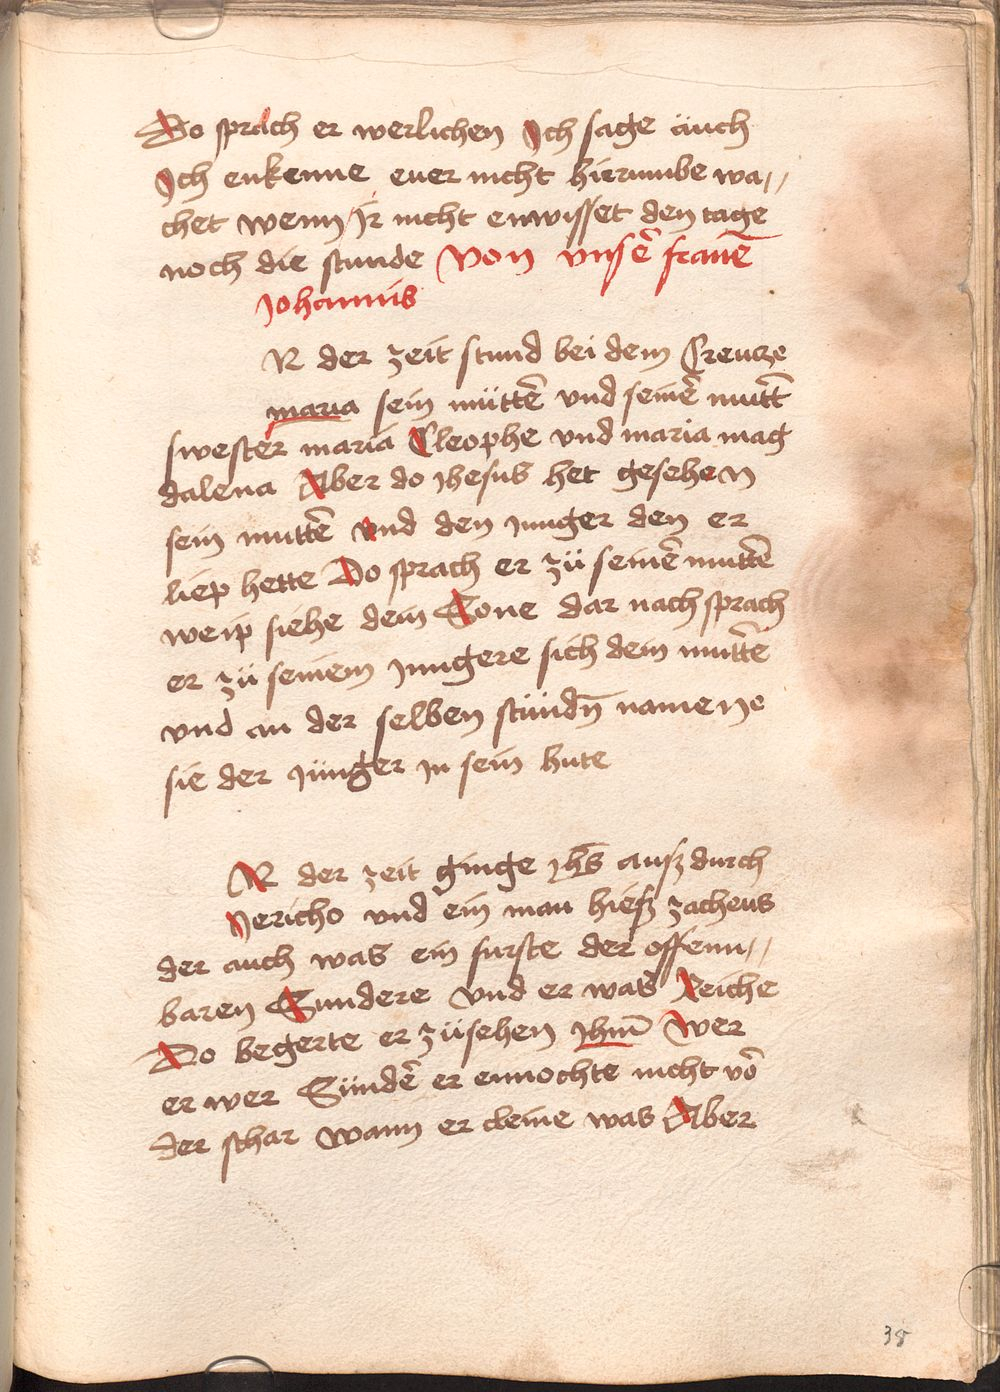 Do sprach er werlichen Ich sage auch
Ich enkenne euer nicht hierumbe wa//
chet wenn Ir nicht enwisset den tage
noch die stunde Von vnsẽ frauẽ
Johannis
N der zeit stund bei dem Creucze
maria sein müttẽ vnd seinẽ mutt̃
swester maria Cleophe vnd maria mag
dalena Aber do Jhesus het gesehen
sein muttẽ vnd den junger den er
liep hette Do sprach er zü seinẽ muttẽ
weip siehe dein Sone dar nach sprach
er zü seinem jungere sich dein muttẽ
vnd an der selben stündñ namene
sie der jünger jn sein hute
N der zeit ginge jhs̃ ausz durch
Jericho vnd ein man hiesz zacheus
der auch was ein furste der offenn//
baren Sundere vnd er was Reiche
Do begerte er züsehen jhm̃ Wer
er wer Sündẽ er enmochte nicht võ
der schar wann er cleine was Aber
38